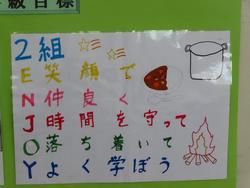 級目標
2組
E笑顔で
N仲良く
J時間を守って
O落ち着いて
Yよく学ぼう